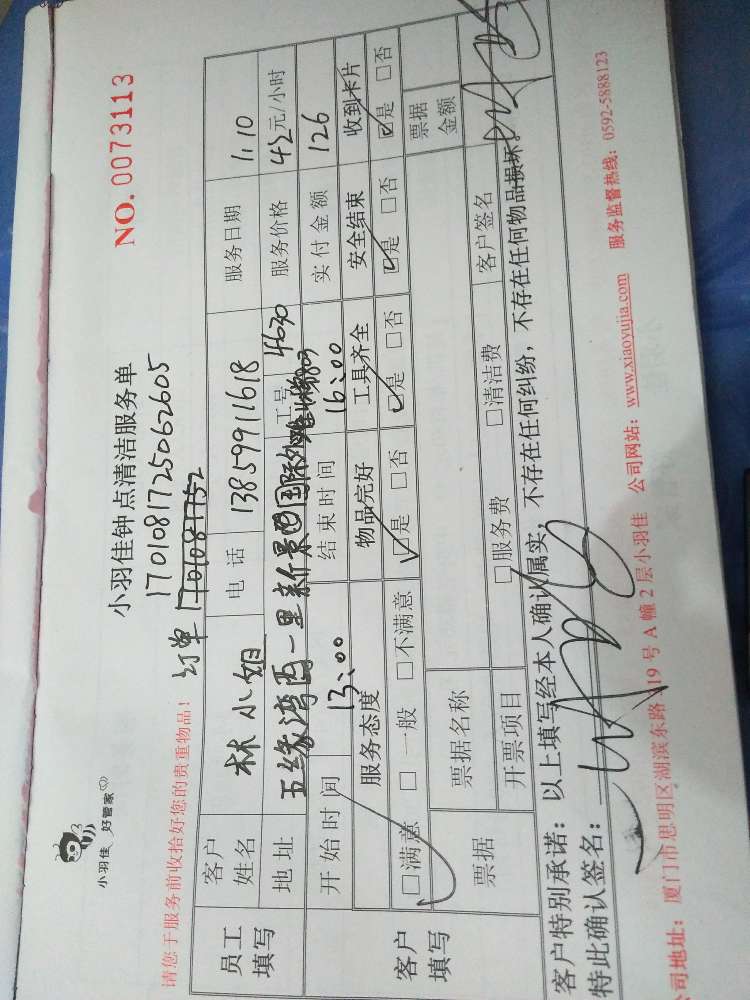 小羽佳 好管家
小羽佳钟点清洁服务单
NO. 0073113
1701081725062605
请您于服务前收拾好您的贵重物品!
订单
员工填写
客户姓名 林小姐 电话 13859911618 服务日期 1.10
地址 五缘湾西一里 工号 4630 服务价格 42元/小时
客户填写
开始时间 13:00 结束时间 16:00 实付金额 126
服务态度 物品完好 工具齐全 安全结束 收到卡片
☑满意 □一般 □不满意 ☑是 □否 ☑是 □否 ☑是 □否 ☑是 □否
票据 票据名称 票据金额
开票项目 □服务费 □清洁费 客户签名
客户特别承诺:以上填写经本人确认属实,不存在任何纠纷,不存在任何物品损坏。
特此确认签名:
司地址:厦门市思明区湖滨东路 319号A幢2层小羽佳 公司网站:www.xiaoyujia.com 服务监督热线:0592-5888123